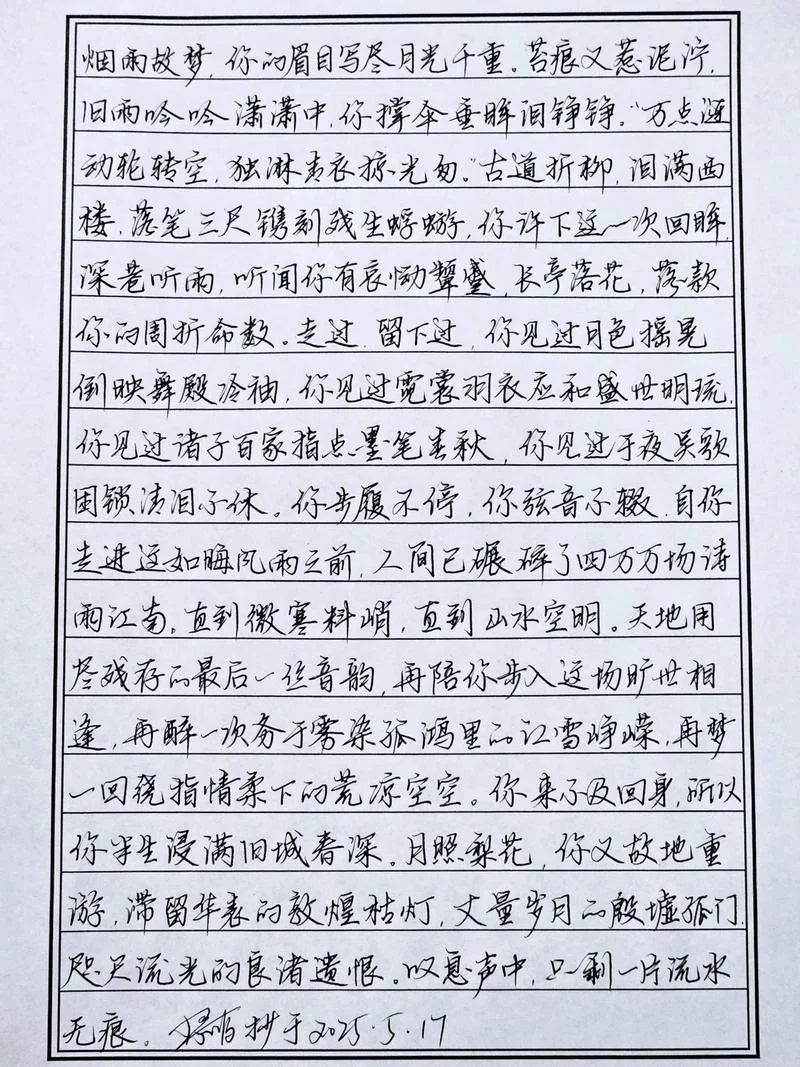 烟雨故梦，你的眉目写尽月光千重。苔痕又惹泥泞，
旧雨吟吟潇潇中，你撑伞垂眸泪铮铮。“万点涟
动轮转空，独淋青衣掠光匆。”古道折柳，泪满西
楼，落笔三尺镌刻残生蜉蝣，你许下这一次回眸，
深巷听雨，听闻你有哀恸颦蹙，长亭落花，落款
你的周折命数。走过，留下过，你见过月色摇晃
倒映舞殿冷袖，你见过霓裳羽衣应和盛世明琉，
你见过诸子百家指点墨笔春秋，你见过子夜吴歌
困锁清泪不休。你步履不停，你弦音不辍，自你
走进这如晦风雨之前，人间已碾碎了四万万场诗
雨江南，直到微寒料峭，直到山水空明。天地用
尽残存的最后一丝音韵，再陪你步入这场旷世相
逢，再醉一次务于雾染孤鸿里的江雪峥嵘，再梦
一回绕指情柔下的荒凉空空。你来不及回身，所以
你半生浸满旧城春深。月照梨花，你又故地重
游，滞留华表的敦煌枯灯，丈量岁月的殷墟孤门，
咫尺流光的良渚遗恨。叹息声中，只剩一片流水
无痕。抄于2025.5.17